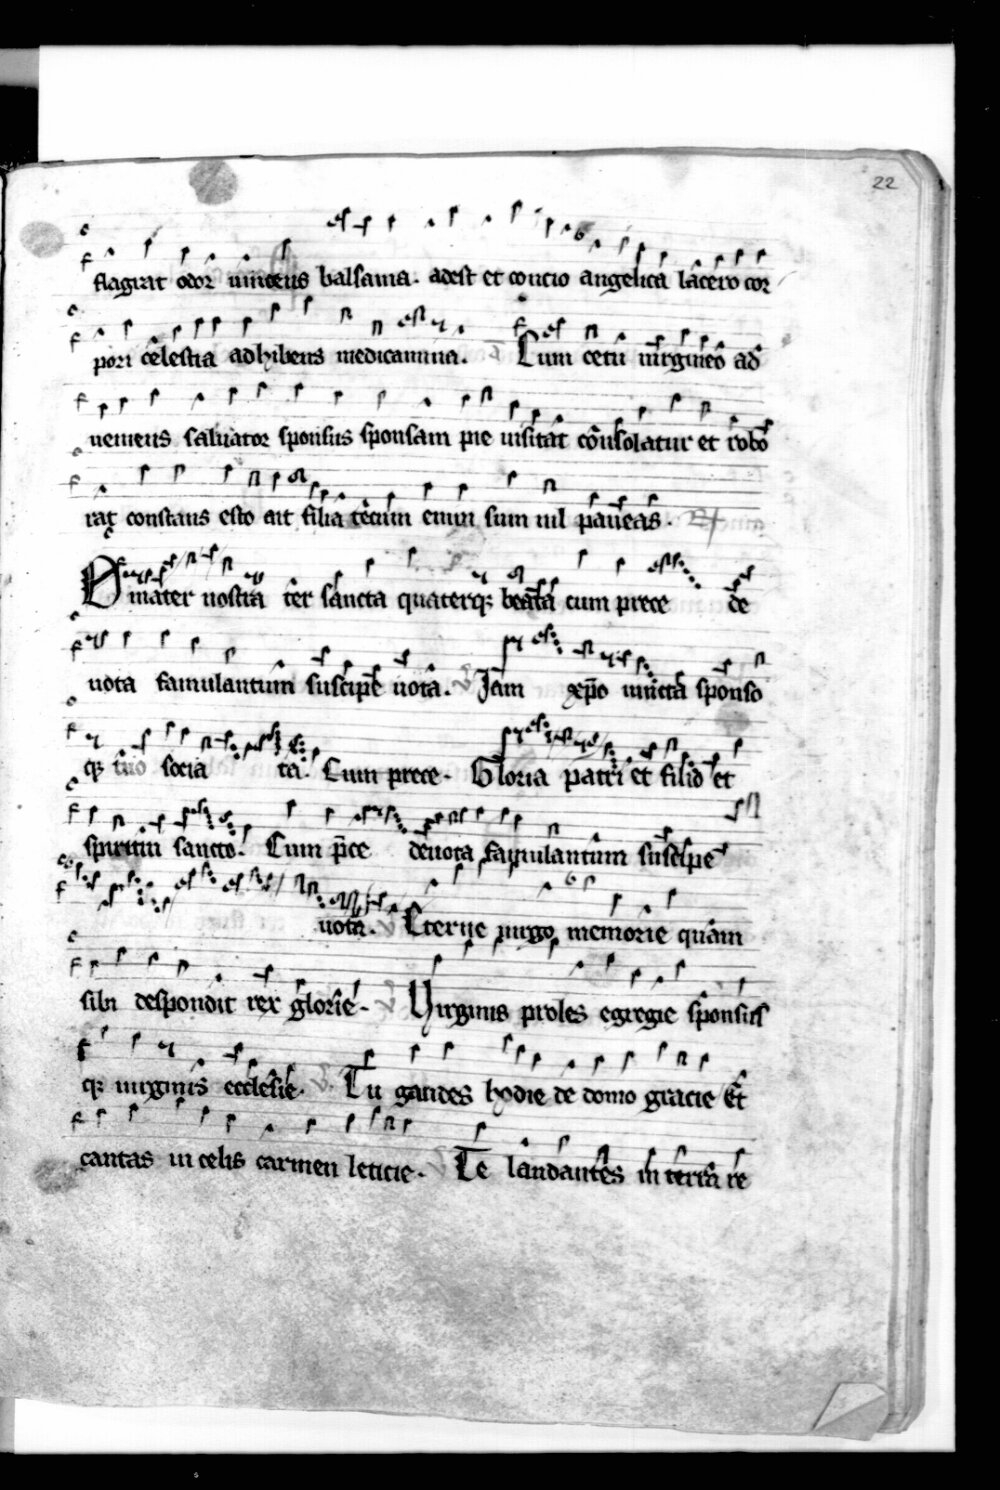 22
flagrat odor uincens balsama. adest et concio angelica lacero cor
pori celestia adhibens medicamina. Cum cetu uirgineo ad
ueniens saluator sponsus sponsam pie uisitat consolatur et robo
rat constans esto ait filia tecum enim sum nil paueas. R
O mater nostra ter sancta quaterq; beata cum prece de
uota famulantum suscipe uota. V Jam xp̄o iuncta sponso
q; tuo socia ta. Cum prece. Gloria patri et filio et
spiritui sancto. Cum p̄ce deuota famulantum suscipe
uota. Eterne uirgo memorie quam
sibi despondit rex glorie. Virginis proles egregie sponsus
q; uirginis ecclesie. Tu gaudes hodie de domo gracie Et
cantas in celis carmen leticie. Te laudantes in terra re